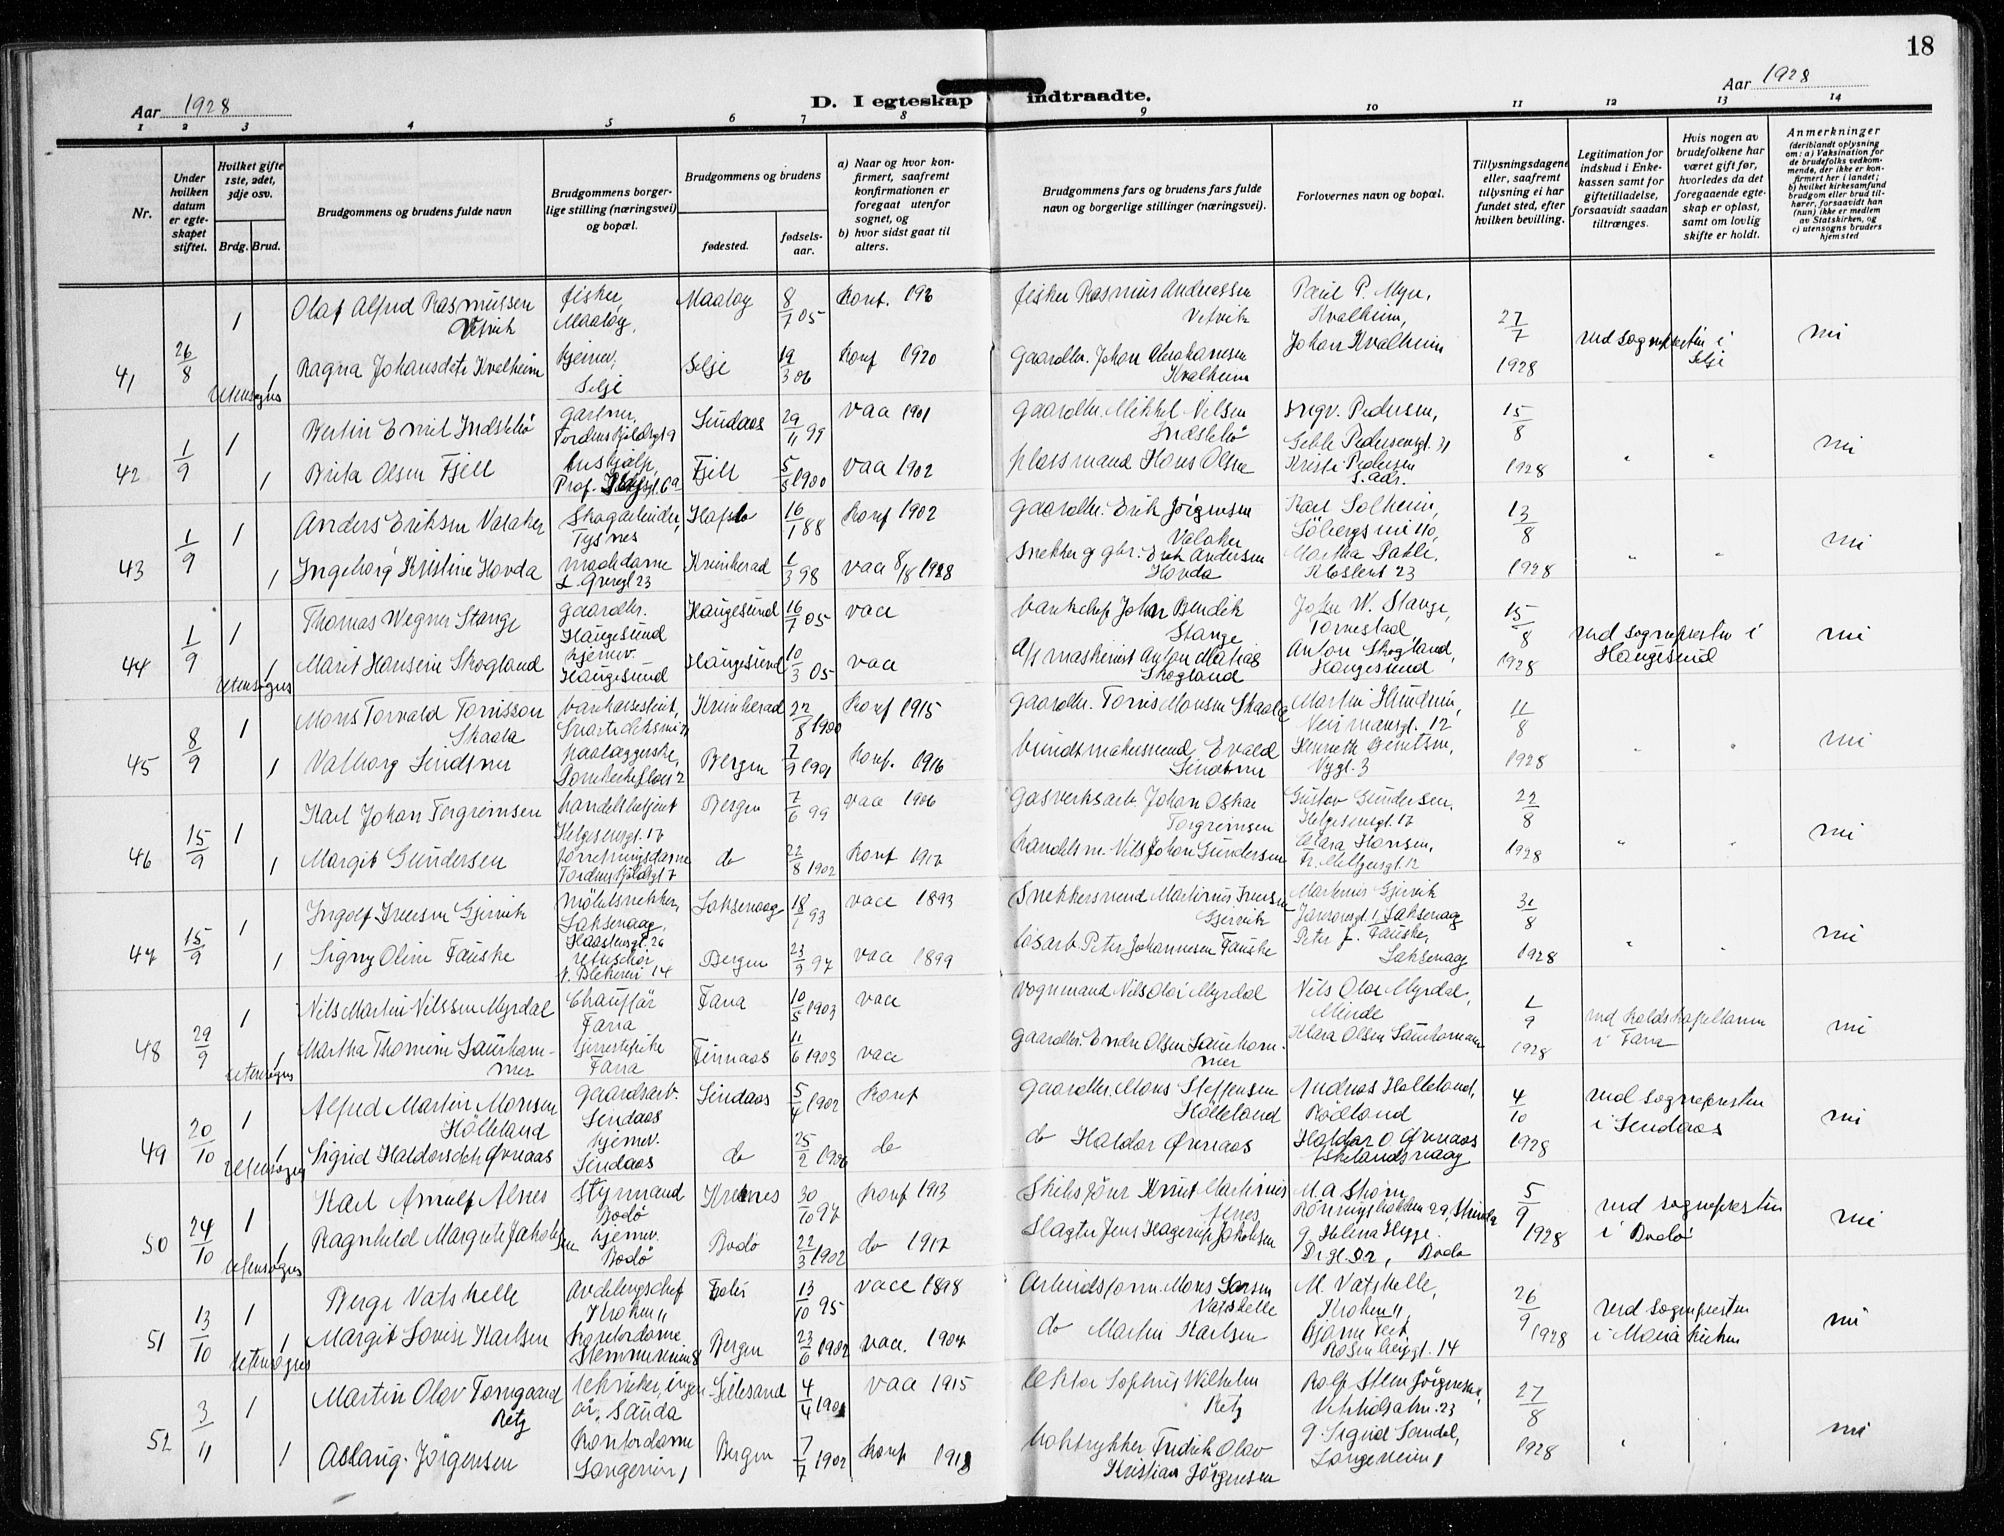 18
Aar 1928
D. I egteskap indtraadte.
Aar 1928
1 2 3 4 5 6 7 8 9 10 11 12 13 14
Nr.
Under hvilken datum er egteskapet stiftet.
Hvilket gifte 1ste, 2det, 3dje osv.
Brdg. Brud.
Brudgommens og brudens fulde navn
Brudgommens borgerlige stilling (næringsvei) og bopæl.
Brudgommens og brudens
fødested. fødselsaar.
a) Naar og hvor konfirmert, saafremt konfirmationen er foregaat utenfor sognet, og
b) hvor sidst gaat til alters.
Brudgommens fars og brudens fars fulde navn og borgerlige stillinger (næringsvei).
Forlovernes navn og bopæl.
Tillysningsdagene eller, saafremt tillysning ei har fundet sted, efter hvilken bevilling.
Legitimation for indskud i Enkekassen samt for giftetilladelse, forsaavidt saadan tiltrænges.
Hvis nogen av brudefolkene har været gift før, hvorledes da det foregaaende egteskap er opløst, samt om lovlig skifte er holdt.
Anmerkninger (deriblandt oplysning om: a) Vaksination for de brudefolks vedkommende, der ikke er konfirmert her i landet; b) hvilket kirkesamfund brudgom eller brud tilhører, forsaavidt han (hun) ikke er medlem av Statskirken, og c) utensogns bruders hjemsted
41 26/8 1 Olaf Alfred Rasmussen Vetvik fisker, Maaløy, Maaløy 8/7 05 konf. fisker Rasmus Andreassen Vetvik Paul P. Myr, Kvalheim, 27/7 ved sognepresten i Selje nei
utensogns 1 Ragna Johansdtr Kvalheim hjemv. Selje Selje 19/3 06 konf 1920 gaardbr. Johan Abrahamsen Kvalheim Johan Kvalheim 1928
42 1/9 1 Bertin Emil Indstebø gartner, Tordenskjoldsgt 9 Lindaas 29/11 99 vaa 1901 gaardbr. Mikkel Nilsen Indstebø Ingv. Pedersen, Geble Pedersensgt. 31 15/8 " " nei
1 Brita Olsen Fjell hushjælp, Fjell 5/5 1900 vaa 1902 plassmand Hans Olsen Krist. Pedersen s. adr. 1928
43 1/9 1 Anders Eriksen Valaker Skogarbeider, Tysnes Hafslo 16/1 88 konf 1902 gaardbr. Erik Jørgensen Valaker Karl Solheim, 13/8 " " nei
1 Ingeborg Kristine Hovda Kvinherad 1/3 98 vaa 8/8 1928 snekker g gbr. Erik Andersen Hovda Martha Sable, Klostert 23 1928
44 1/9 1 Thomas Wegner Stange gaardbr. Haugesund Haugesund 16/7 05 vaa bankchef John Bendik Stange John W. Stange, Tornestad 15/8 ved sognepresten i Haugesund nei
utensogns 1 Marit Hansine Skogland hjemv. Haugesund Haugesund 10/3 05 vaa maskinist Anton Mathias Skogland Anton Skogland, Haugesund 1928
45 8/9 1 Mons Torvald Tomisson Skaala Kvinherad 22/8 1900 konf 1915 gaardbr. Tomis Monsen Skaala Martin 11/8 " " nei
1 Valborg Lindtner Bergen 7/9 1901 konf. 1916 buntmakersvend Evald Lindtner Nygt. 3 1928
46 15/9 1 Karl Johan Torgrimsen handelsbetjent Helgesensgt. 17 Bergen 7/6 99 vaa 1906 gasverksarb. Johan Oskar Torgrimsen Gustav Gundersen. Helgesensgt. 17 22/8 " " nei
1 Margit Gundersen forretningsdame Tordenskjoldsgt 7 do 22/8 1902 konf 1917 handelsm. Nils Johan Gundersen Clara Hansen, Fr. Meltzersgt. 12 1928
47 15/9 1 Ingolf Iversen Gjervik møbelsnekker, Laksevaag, Laksevaag 18/1 93 vaa 1893 Snekkersvend Martinus Iversen Gjervik Martinus Gjervik Laksevaag 31/8 " " nei
1 Signy Oline Fauske Haasteinsgt. 26 retuschør Bergen 23/9 97 vaa 1899 løsarb Peter Johannesen Fauske Peter J. Fauske, Laksevaag 1928
48 29/9 1 Nils Martin Nilssen Myrdal Chauffør Fana Fana 10/5 1903 vaa vognmand Nils Olai Myrdal Nils Olai Myrdal, Minde 1/9 ved holdskapellanen i Fana nei
utensogns 1 Martha Thomine Saurhammer Fana Finnaas 11/6 1903 vaa gaardbr. Endre Olsen Saurhammer Klara Olsen Saurhammer 1928
49 20/10 1 Alfred Martin Monsen Hølleland gaardsarb. Lindaas Lindaas 5/4 1902 konf gaardbr. Mons Steffensen Hølleland Andreas Hølleland, Rødland 4/10 ved sognepresten i Lindaas nei
utensogns 1 Sigrid Haldorsdtr Øvreaas hjemv. Lindaas do 25/2 1906 do do Haldor Øvreaas Haldor O Øvreaas Eikelandsvaag 1928
50 24/10 1 Karl Arnulf Alnes styrmand Bodø 30/10 97 konf 1913 Skibsfører Knut Martinius Alnes M. A Strøm 5/9 ved sognepresten i Bodø nei
utensogns 1 Ragnhild Margrete Jakobsen hjemv. Bodø Bodø 22/3 1902 do 1917 Slagter Jens Hagerup Jakobsen g Helena Hegge. Bodø 1928
51 13/10 1 Berge Vatshelle Avdelingschef Krohen 11 13/10 95 vaa 1898 Arbeidsform. Mons Larsen Vatshelle M. Vatshelle, Krohen 11, 26/9 ved sognepresten i Mariakirken nei
utensogns 1 Margit Lovise Karlsen kontordame Bergen 23/6 1902 vaa. 1907 do Martin Karlsen Rosenbergsgt. 14 1928
52 3/11 1 Martin Olav Tomgaard Retz Sauda Lillesand 4/4 1901 vaa 1915 lektor Sophus Wilhelm Retz Rolf Steen Jørgensen, 27/8 " " nei
1 Aslaug Jørgensen kontordame Bergen 7/7 1902 konf 1918 boktrykker Fredrik Olav Kristian Jørgensen g Sigrid Sandal, 1928